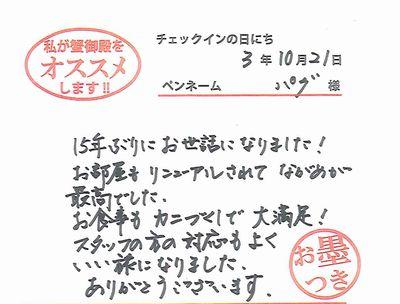 私が蟹御殿を
オススメ
します!!
チェックインの日にち
3年10月21日
ペンネーム パグ 様
15年ぶりにお世話になりました!
お部屋もリニューアルされてながめが
最高でした。
お食事もカニづくしで大満足!
スタッフの方の対応もよく
いい旅になりました。
ありがとうございます。
お墨
つき